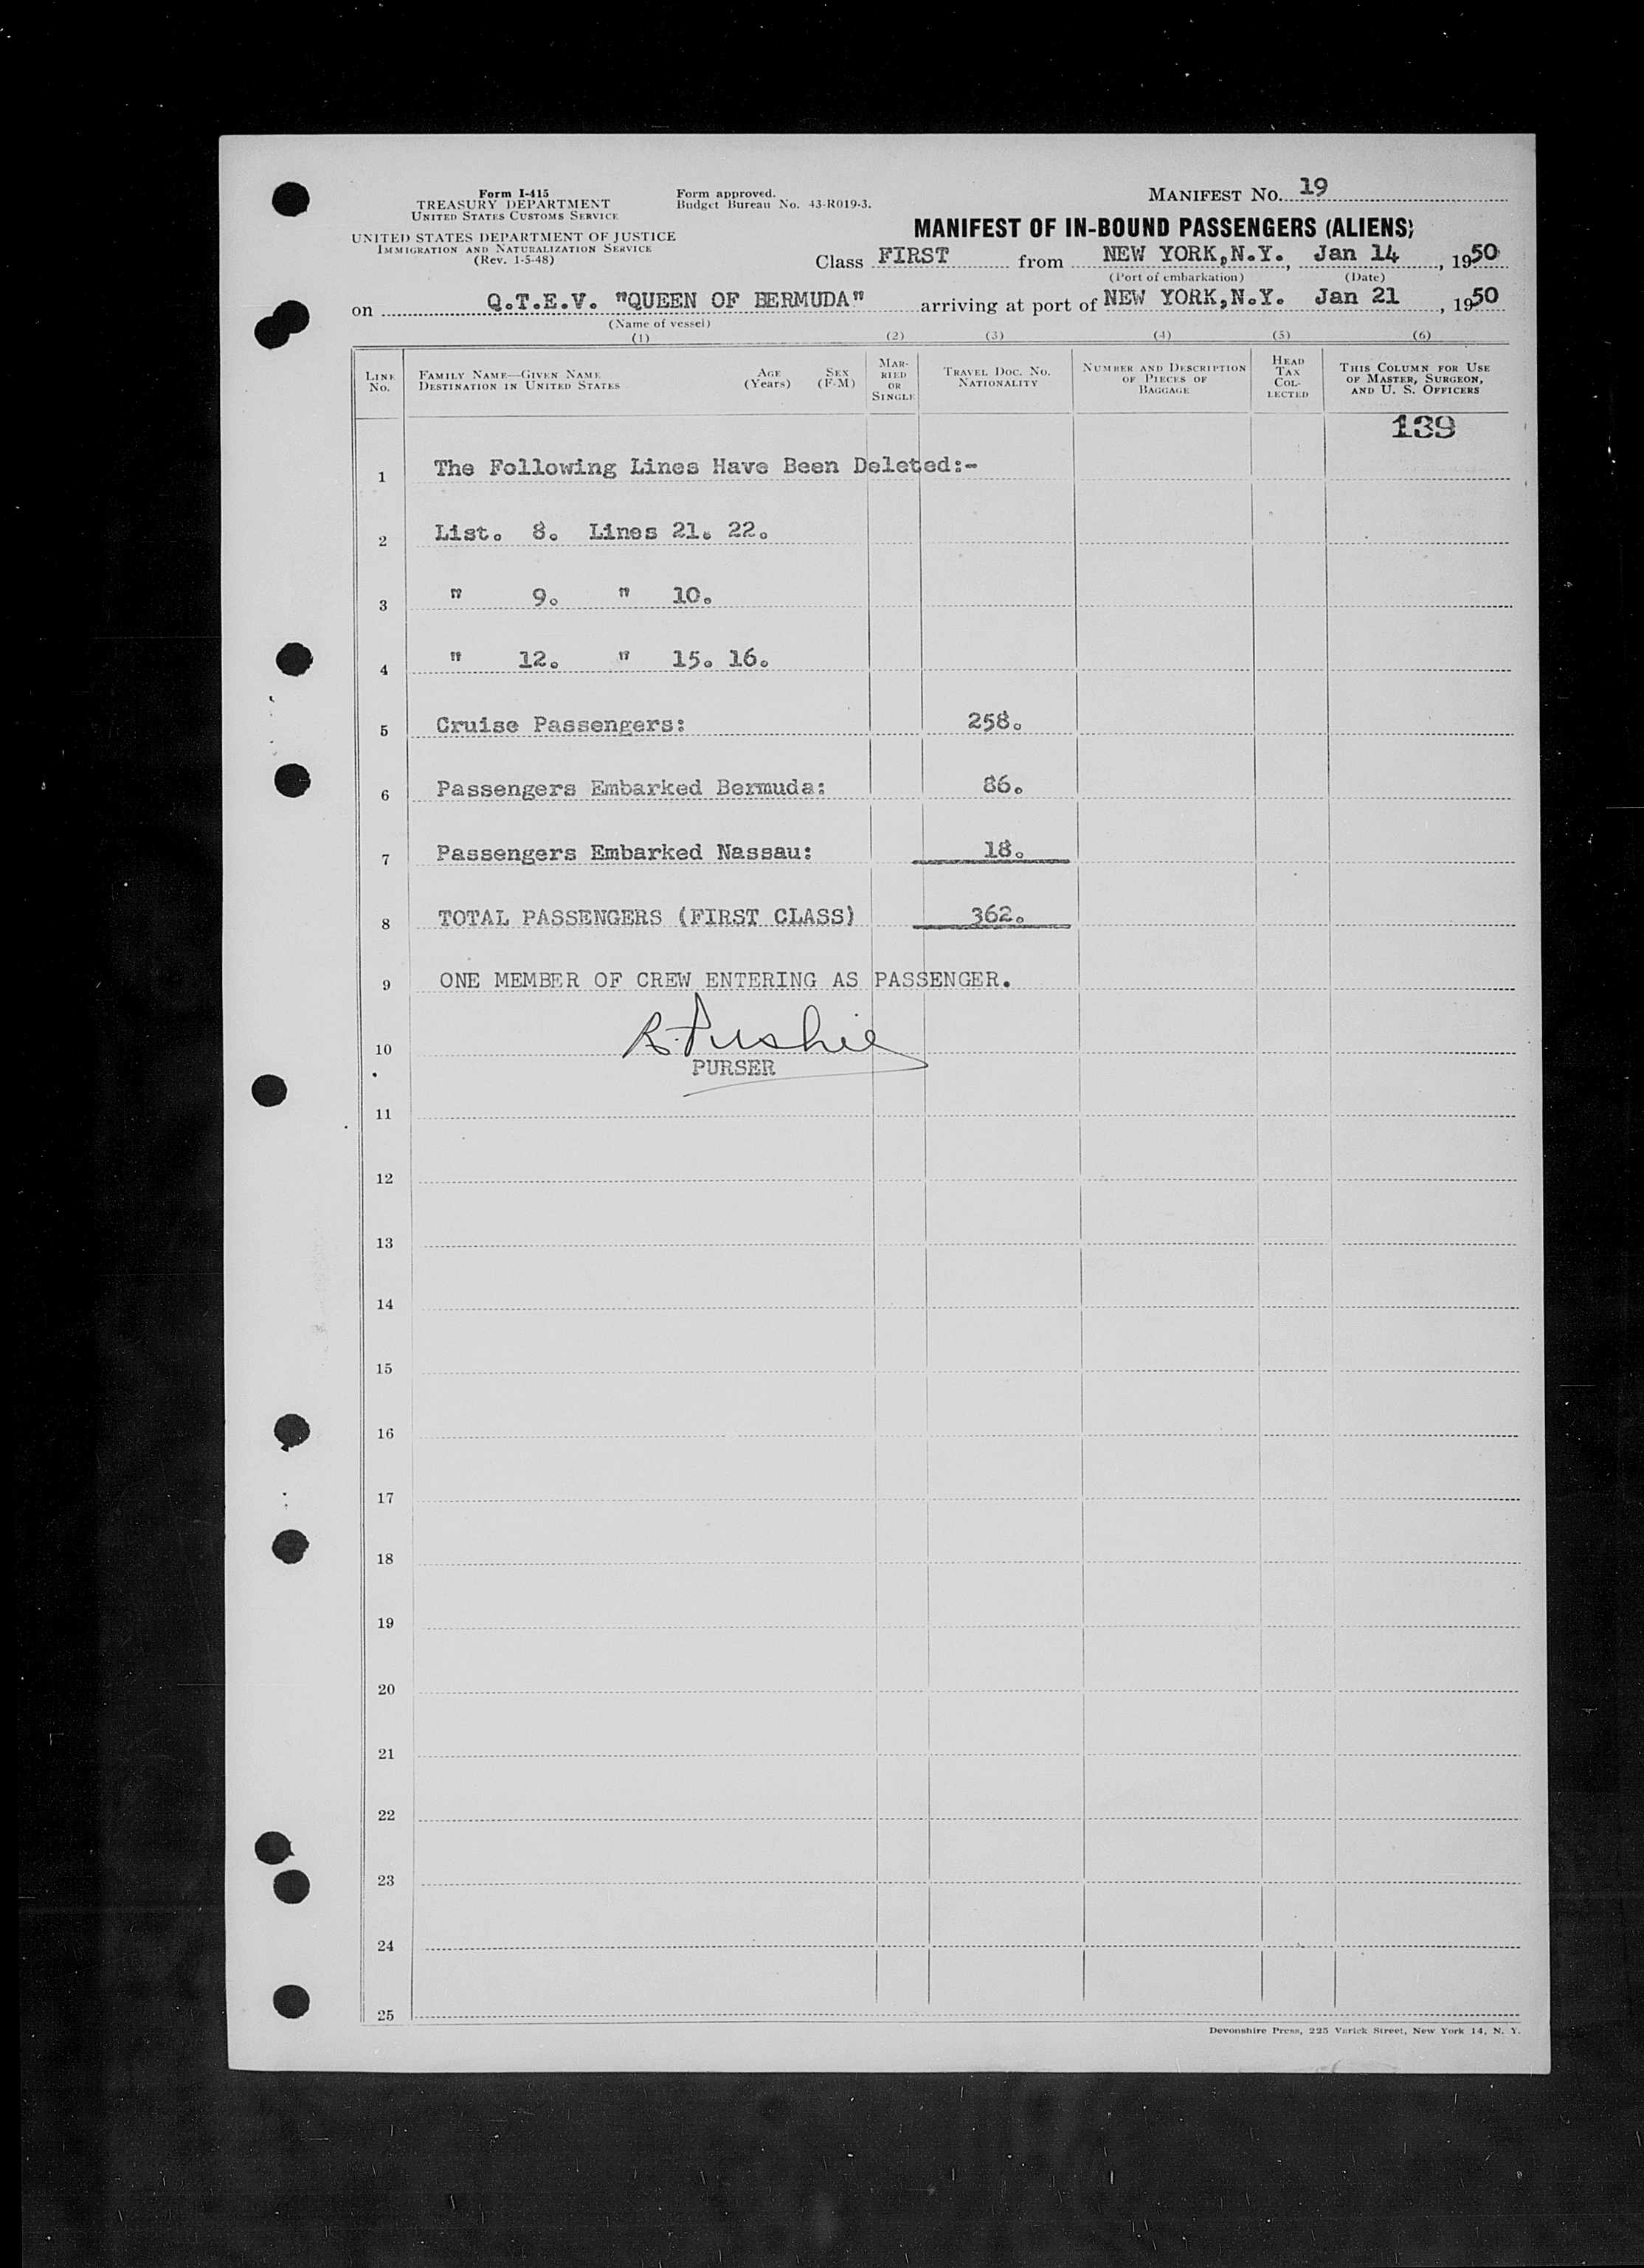 Form I-415
TREASURY DEPARTMENT
UNITED STATES CUSTOMS SERVICE
UNITED STATES DEPARTMENT OF JUSTICE
IMMIGRATION AND NATURALIZATION SERVICE
(Rev. 1-5-48)
Form approved.
Budget Bureau No. 43-R019-3.
MANIFEST NO. 19
MANIFEST OF IN-BOUND PASSENGERS (ALIENS)
Class FIRST from NEW YORK,N.Y., Jan 14, 1950
(Port of embarkation) (Date)
on Q.T.E.V. "QUEEN OF BERMUDA" arriving at port of NEW YORK,N.Y. Jan 21, 1950
(Name of vessel)
(1) (2) (3) (4) (5) (6)
LINE NO.
FAMILY NAME—GIVEN NAME
DESTINATION IN UNITED STATES
AGE (Years)
SEX (F-M)
MARRIED OR SINGLE
TRAVEL DOC. NO. NATIONALITY
NUMBER AND DESCRIPTION OF PIECES OF BAGGAGE
HEAD TAX COLLECTED
THIS COLUMN FOR USE OF MASTER, SURGEON, AND U. S. OFFICERS
139
1 The Following Lines Have Been Deleted:-
2 List. 8. Lines 21. 22.
3 " 9. " 10.
4 " 12. " 15. 16.
5 Cruise Passengers: 258.
6 Passengers Embarked Bermuda: 86.
7 Passengers Embarked Nassau: 18.
8 TOTAL PASSENGERS (FIRST CLASS) 362.
9 ONE MEMBER OF CREW ENTERING AS PASSENGER.
10
PURSER
11
12
13
14
15
16
17
18
19
20
21
22
23
24
25
Devonshire Press, 225 Varick Street, New York 14, N. Y.